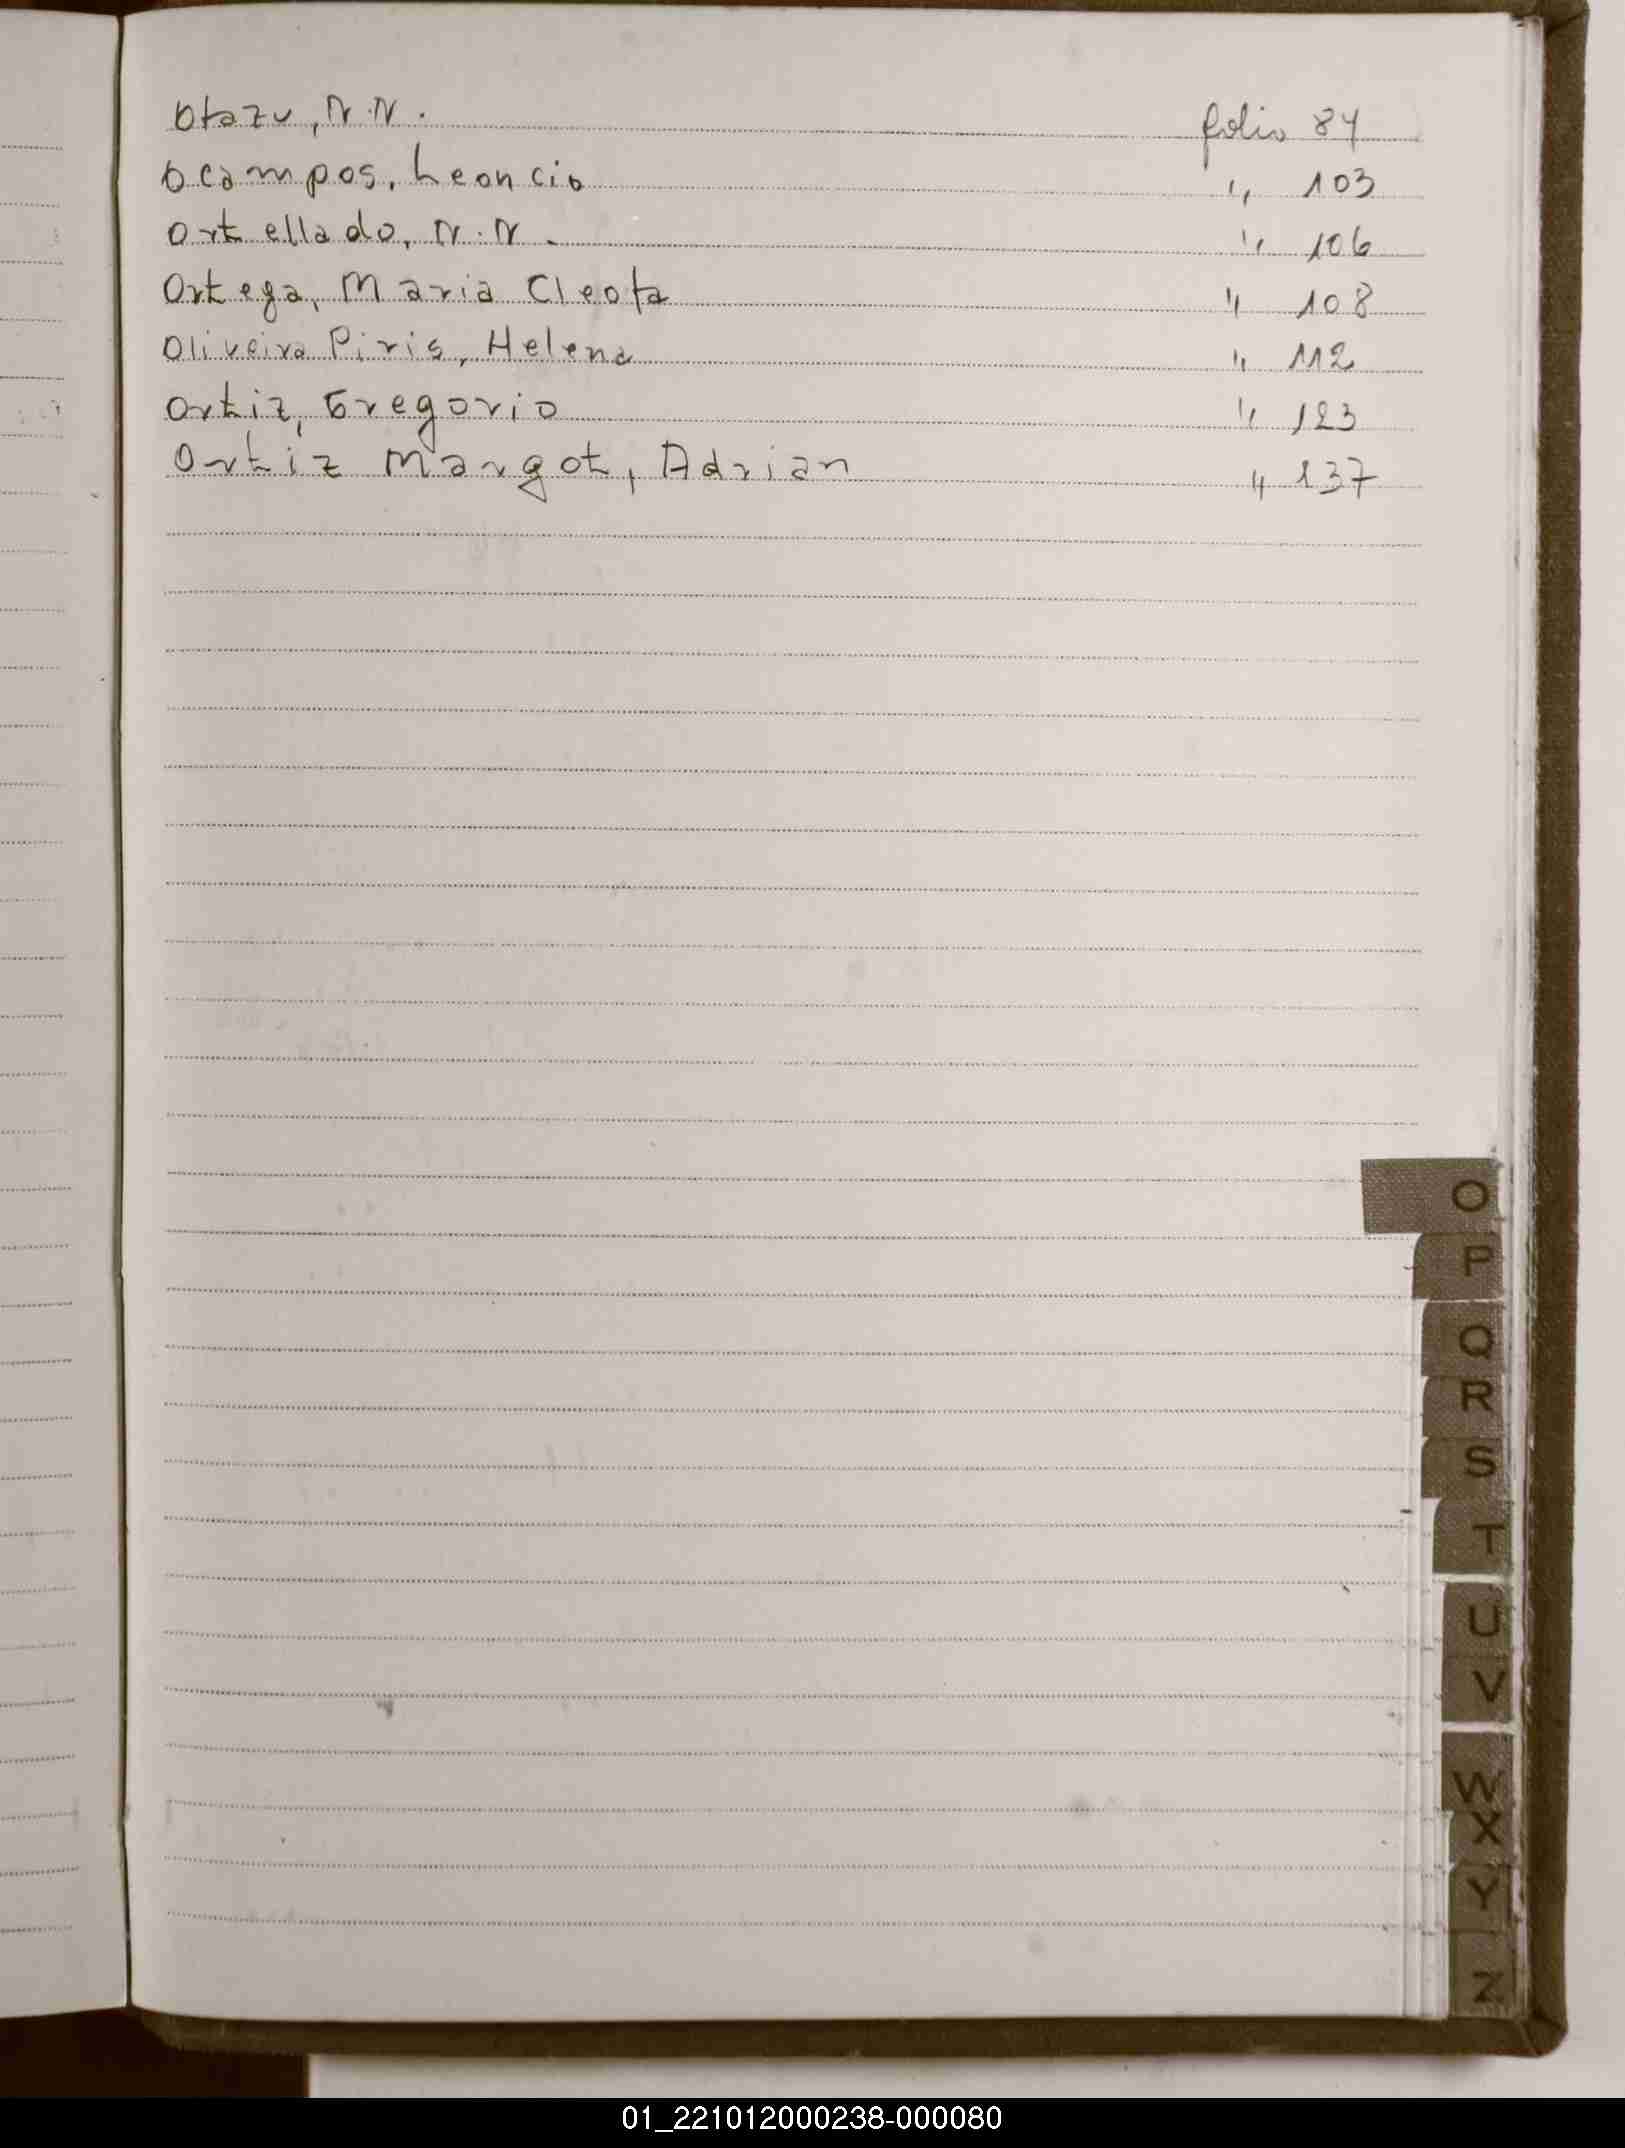 Otazu, N.N. folio 84
Ocampos, Leoncio " 103
Ortellado, N.N. " 106
Ortega, Maria Cleofa " 108
Oliveira Piris, Helena " 112
Ortiz, Gregorio " 123
Ortiz Margot, Adrian " 137
O
P
Q
R
S
T
U
V
W
X
Y
Z
01_221012000238-000080